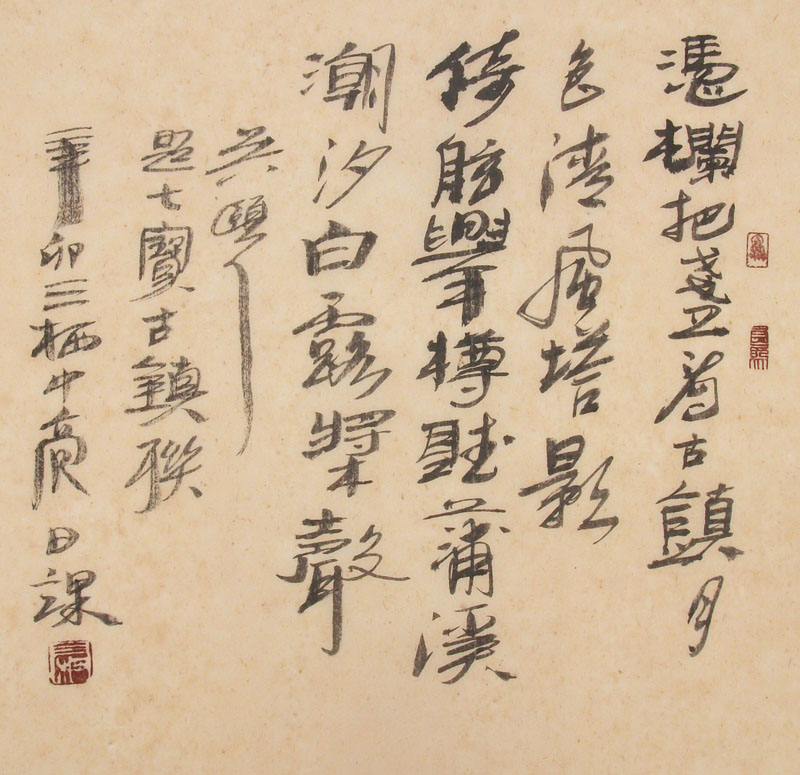 憑欄把盞看古鎮月
色清風塔影
倚舫舉樽聽蒲溪
潮汐白露槳聲
吳頤人
題七寶古鎮聯
辛卯三栖中日課